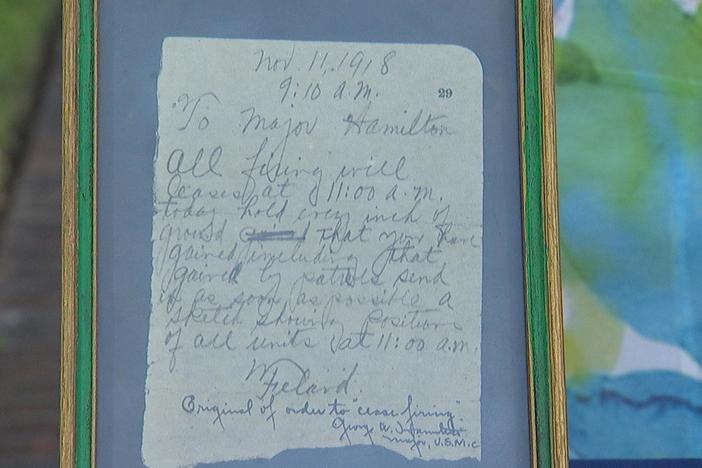 Nov. 11, 1918
9:10 A.M.
29
To Major Hamilton
All firing will
ceases at 11:00 a.m.
today hold every inch of
ground that you have
gained including that
gained by patrols send
in as soon as possible a
sketch showing positions
of all units at 11:00 a.m.
Feland.
Original of order to "cease firing".
George W. Hamilton
Major, U.S.M.C